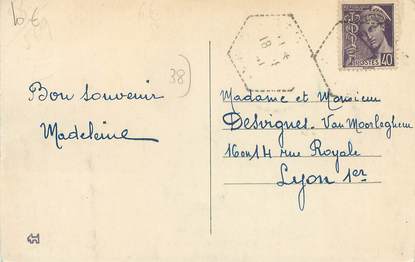 bε
38
18
POSTES 40
Bon souvenir
Madeleine
Madame et Monsieur
Desvignes-Van Moorleghem
16 on 14 rue Royale
Lyon 1er